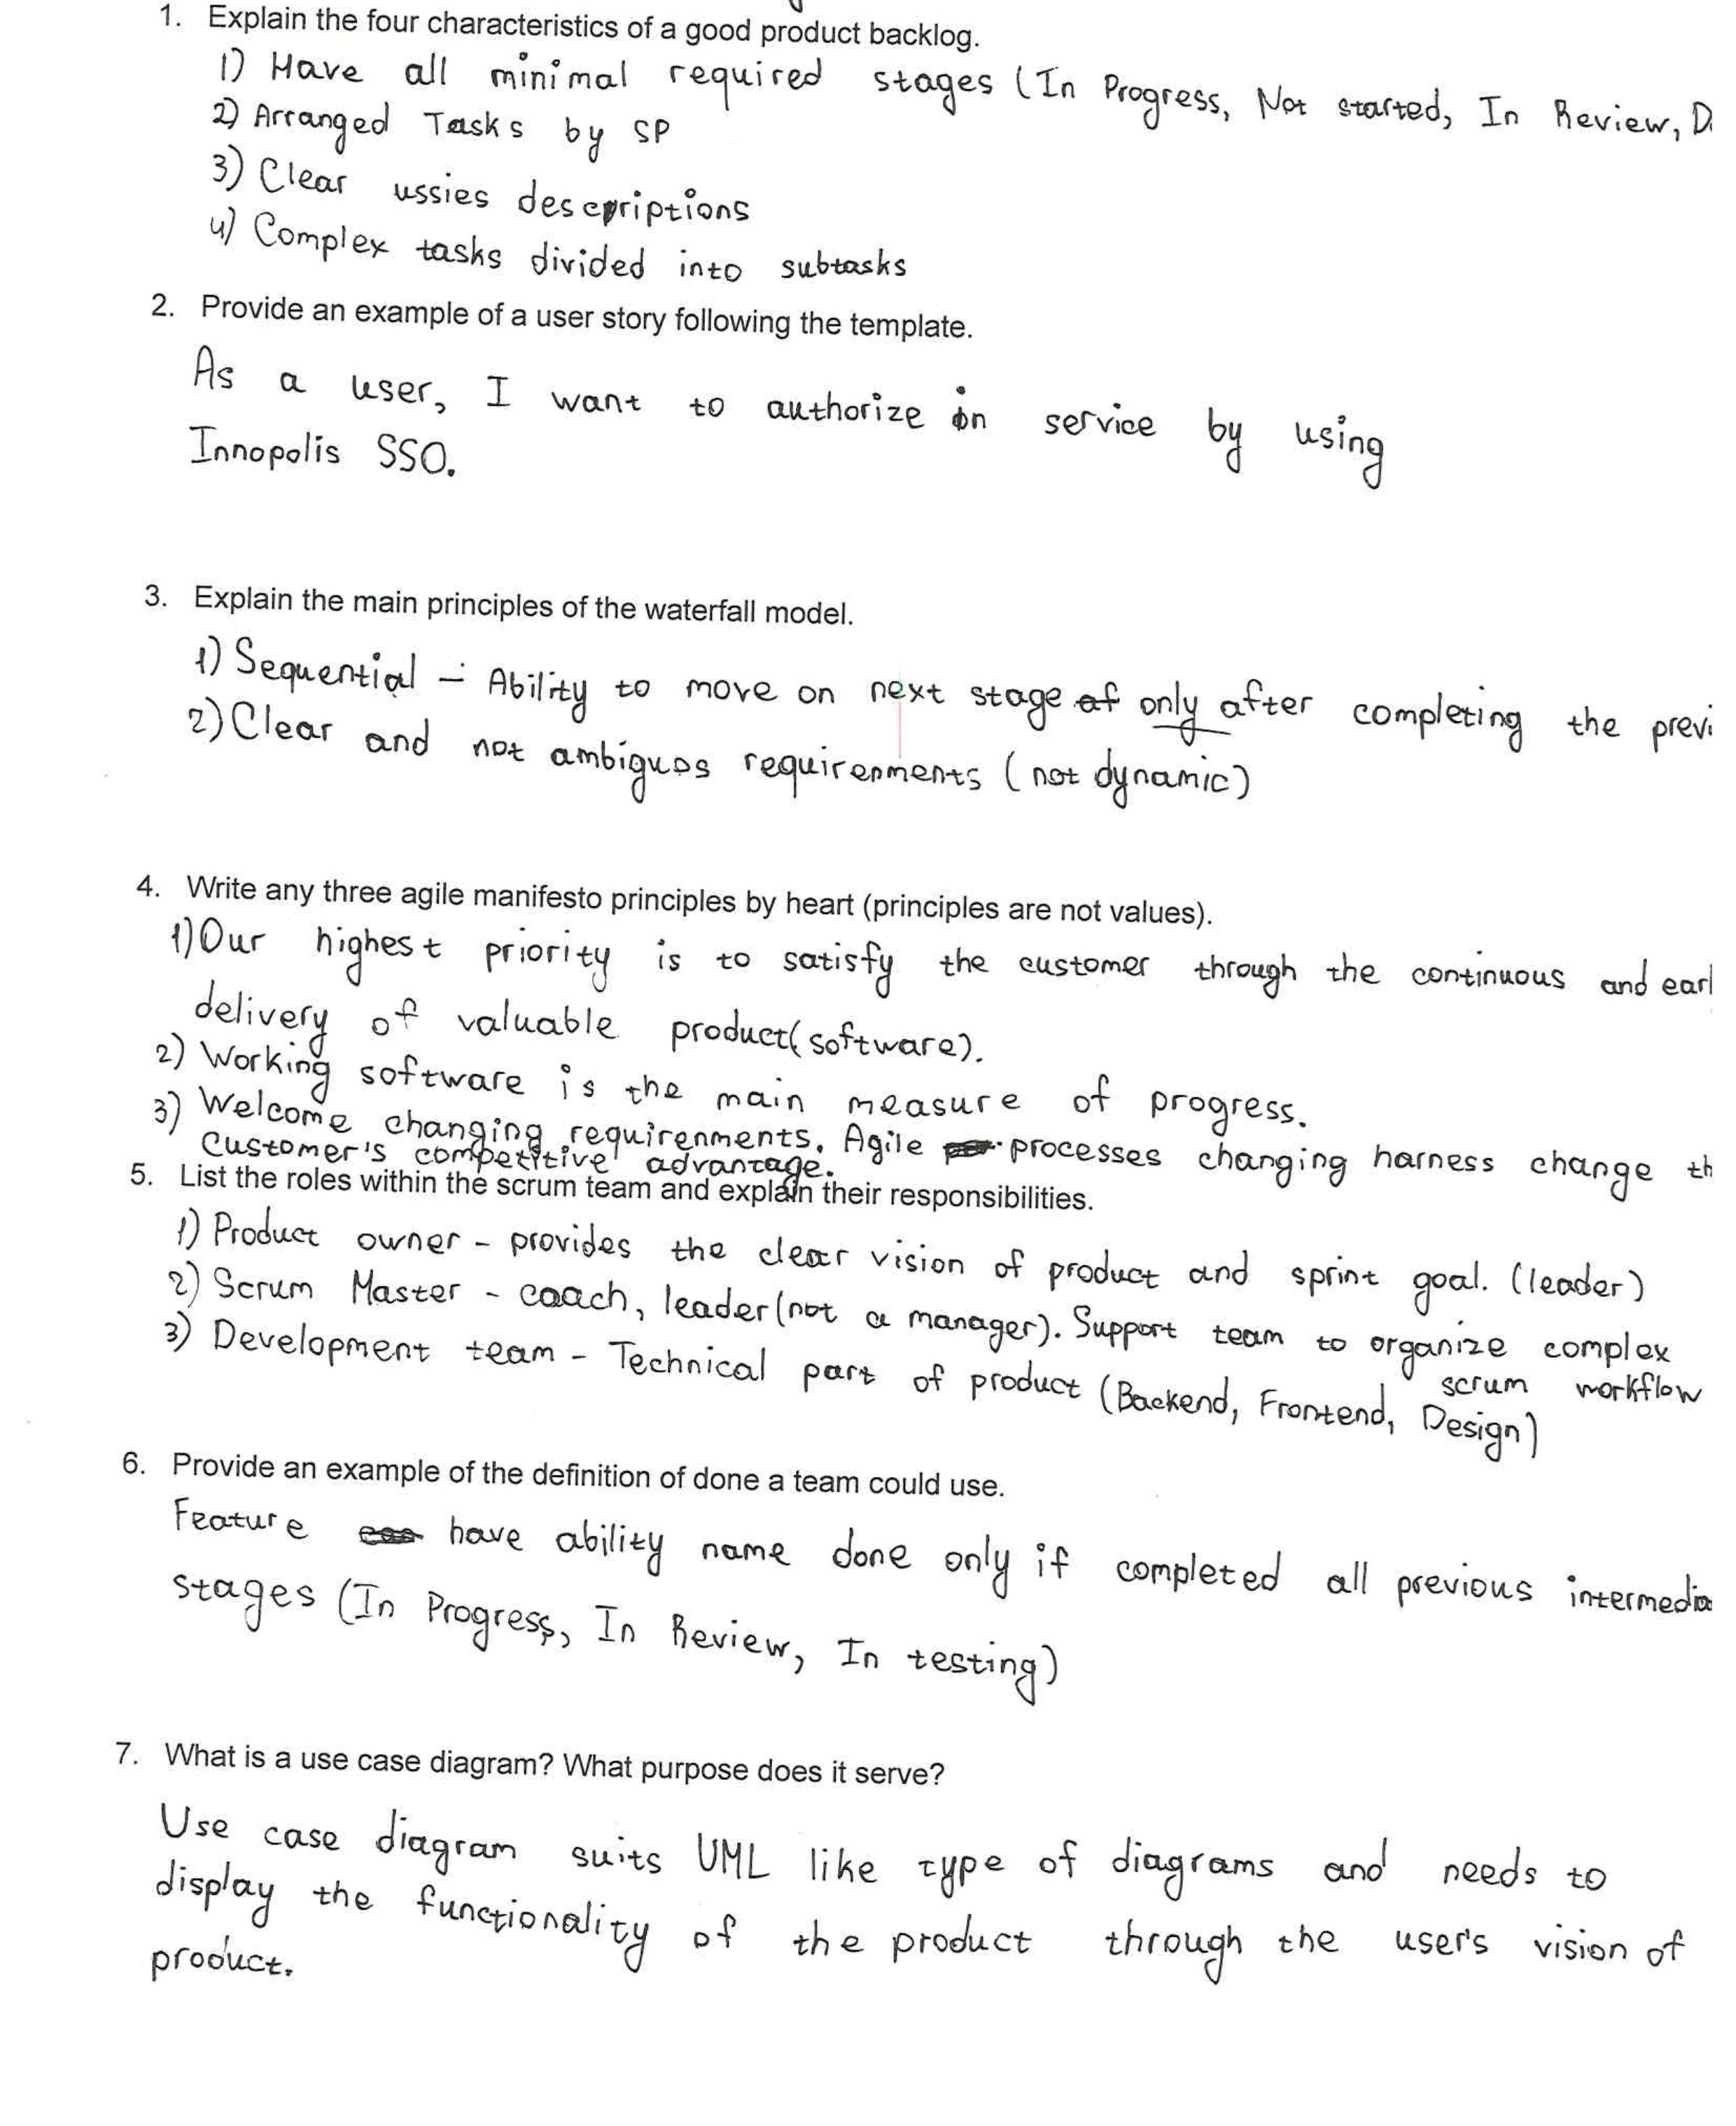 1. Explain the four characteristics of a good product backlog.
1) Have all minimal required stages (In Progress, Not started, In Review, D
2) Arranged Tasks by SP
3) Clear ussies descpriptions
4) Complex tasks divided into subtasks
2. Provide an example of a user story following the template.
As a user, I want to authorize in service by using
Innopolis SSO.
3. Explain the main principles of the waterfall model.
1) Sequential - Ability to move on next stage only after completing the previ
2) Clear and not ambiguos requirenments (not dynamic)
4. Write any three agile manifesto principles by heart (principles are not values).
1) Our highest priority is to satisfy the customer through the continuous and earl
delivery of valuable product(software).
2) Working software is the main measure of progress.
3) Welcome changing requirenments. Agile processes changing harness change th
customer's competitive advantage.
5. List the roles within the scrum team and explain their responsibilities.
1) Product owner - provides the clear vision of product and sprint goal. (leader)
2) Scrum Master - coach, leader (not a manager). Support team to organize complex
scrum workflow
3) Development team - Technical part of product (Backend, Frontend, Design)
6. Provide an example of the definition of done a team could use.
Feature have ability name done only if completed all previous intermedia
stages (In Progress, In Review, In testing)
7. What is a use case diagram? What purpose does it serve?
Use case diagram suits UML like type of diagrams and needs to
display the functionality of the product through the user's vision of
product.